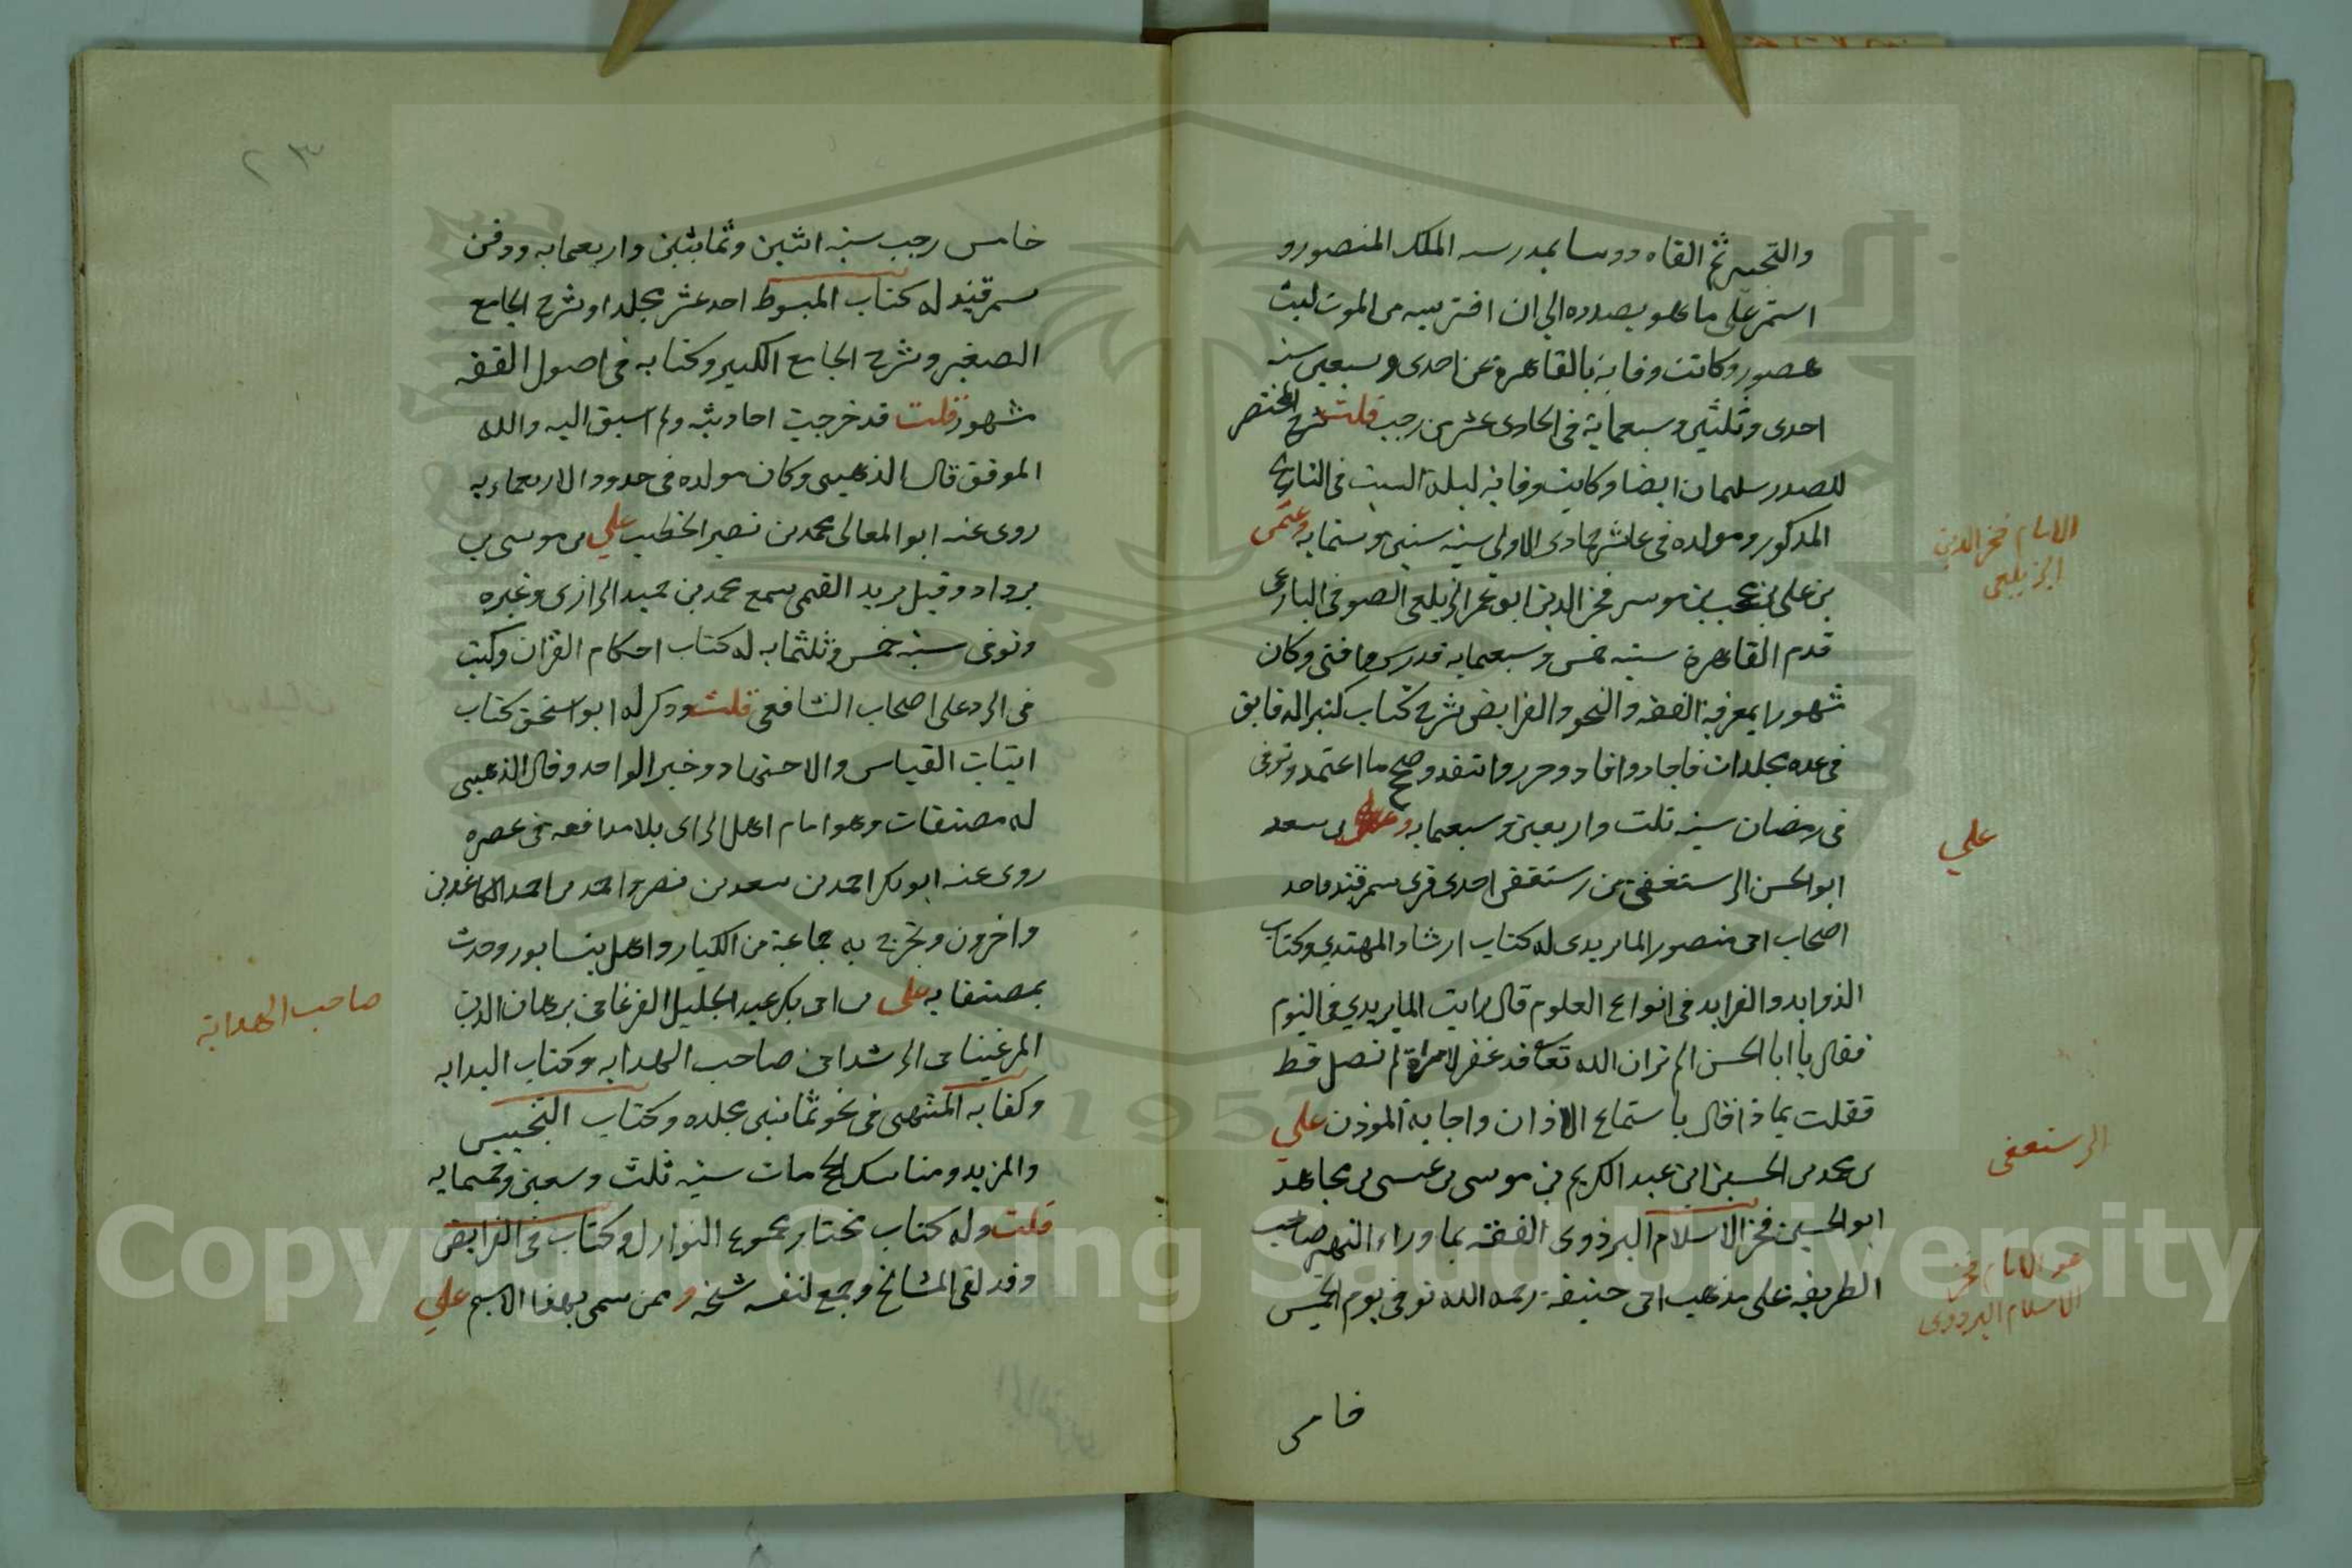 والتحبير ثم القاه دروسا بمدرسه الملك المنصور و
استمر على ما هو بصدده الي ان افترسه من الموت ليث
هصور وكانت وفاته بالقاهرة عن احدى وسبعين سنه
احدى وثلثين وسبعماية في الحادى عشر من رجب قلت شرح المختصر
للصدر سليمان ايضا وكانت وفاته ليلة السبت في التاريخ
المذكور ومولده في عاشر جمادى الاولى سنه ستين وستمايه وعثمن
بن علي بن محجن بن موسر فخر الدين ابو عمر الزيلعي الصوفي البارعي
قدم القاهرة سنه خمس وسبعمايه فدرس وافتى وكان
شهورا بمعرفة الفقه والنحو والفرايض شرح كتاب كنز الدقايق
في عده مجلدات فاجاد وافاد وحرر وانتقد وصحح ما اعتمد وتوفى
في رمضان سنه ثلث واربعين وسبعمايه وعلى بن سعد
ابو الحسن الرستغفني من رستغفن احدى قرى سمرقند واحد
اصحاب ابى منصور الماتريدى له كتاب ارشاد المهتدي وكتاب
الزوايد والفرايد في انواع العلوم قال رايت الماتريدي في النوم
فقال يا ابا الحسن الم تر ان الله تعالى قد غفر لامراة لم تصل قط
فقلت بماذا قال باستماع الاذان واجابة الموذن علي
بن محمد بن الحسين ابن عبد الكريم بن موسى بن عيسى بن مجاهد
ابو الحسين فخر الاسلام البزدوى الفقه بما وراء النهر صاحب
الطريقه على مذهب ابى حنيفة رحمه الله توفى يوم الخميس
خامس
الامام فخر الدين
الزيلعى
علي
الرستغفى
هو الامام فخر
الاسلام البزدوى
٢٣
خامس رجب سنه اثنين وثمانين واربعمايه ودفن
سمرقند له كتاب المبسوط احد عشر مجلدا وشرح الجامع
الصغير وشرح الجامع الكبير وكتابه في اصول الفقه
شهور قلت قد خرجت احاديثه ولم اسبق اليه والله
الموفق قال الذهبى وكان مولده في حدود الاربعماءيه
روى عنه ابو المعالى محمد بن نصير الخطيب علي بن موسى بن
يرداد وقيل يريد القمى سمع محمد بن حميد الرازى وغيره
وتوفى سنه خمس وثلثمايه له كتاب احكام القران وكتب
في الرد على اصحاب الشافعى قلت وذكر له ابو اسحق كتاب
اثبات القياس والاجتهاد وخبر الواحد وقال الذهبى
له مصنفات وهو امام اهل الراى بلا مدافعه في عصره
روى عنه ابو بكر احمد بن سعد بن نصر واحمد بن احمد الكاغدين
واخرون وتخرج به جماعة من الكبار واهل نيسابور وحدث
بمصنفاته على بن ابى بكر عبد الجليل الفرغانى برهان الدين
المرغينانى الرشدانى صاحب الهدايه وكتاب البدايه
وكفايه المنتهى في نحو ثمانين مجلده وكتاب التجنيس
والمزيد ومناسك الحج مات سنه ثلث وسعين وخمسمايه
قلت وله كتاب مختار مجموع النوازل وكتاب في الفرايض
وقد لقى المشايخ وجمع لنفسه شيخه وممن سمى بهذا الاسم علي
صاحب الهداية
Copyright © King Saud University
1957